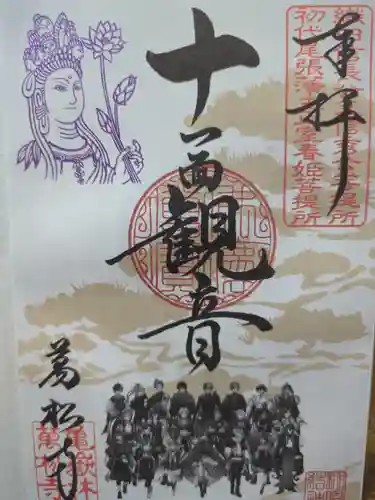 奉拝
織田信長
菩提所
初代尾張藩
春姫菩提所
十一面観音
萬松寺
龜嶽林
萬松寺